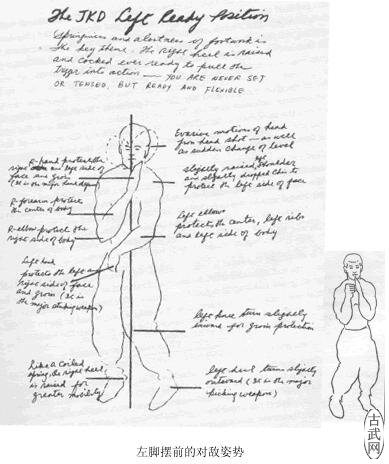 The JKD Left Ready Position
Springiness and alertness of footwork is
the key theme. The right heel is raised
and cocked ever ready to pull the
trigger into action — YOU ARE NEVER SET
OR TENSED, BUT READY AND FLEXIBLE
R-hand protect the
right and left side of
face and groin
(It is the major hand guard)
R-forearm protect
the center of body
R-elbow protect the
right side of body
Left hand
protects the left and
right sides of face
and groin (It is
the major striking weapon)
Like a coiled
spring, the right heel
is raised for
greater mobility
Evasive motions of head
from head shot — as well
as sudden change of level
slightly raised shoulder
and slightly dropped chin to
protect the left side of face
Left elbow
protects the center, left ribs
and left side of body
left knee turn slightly
inward for groin protection
left heel turns slightly
outward (It is the major
kicking weapon)
古武网
左脚摆前的对敌姿势